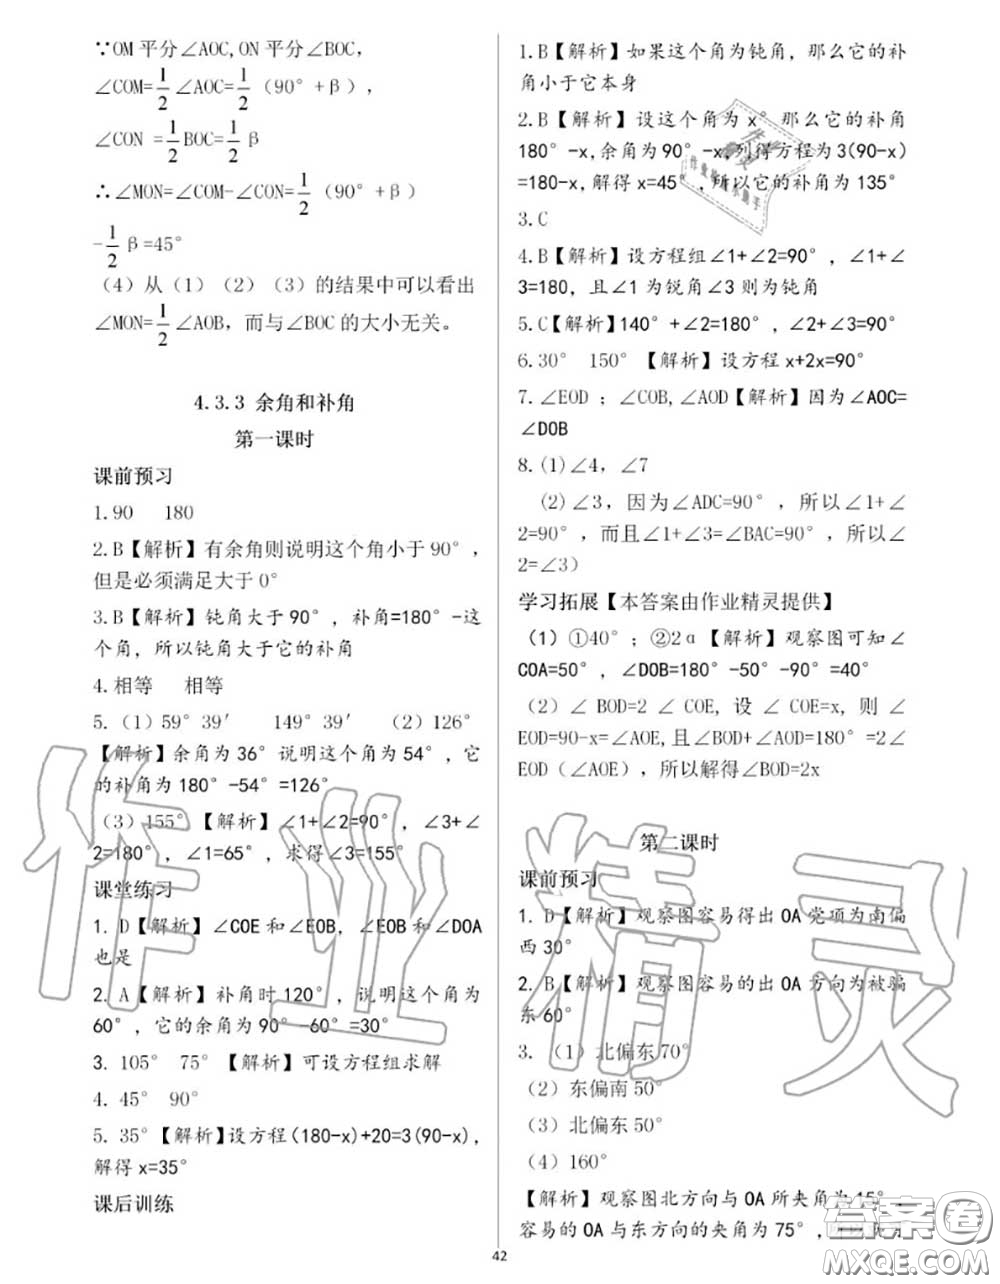 ∵OM 平分∠AOC,ON 平分∠BOC,
∠COM=1/2∠AOC=1/2（90°+β），
∠CON =1/2BOC=1/2β
∴∠MON=∠COM-∠CON=1/2（90°+β）
-1/2β=45°
（4）从（1）（2）（3）的结果中可以看出
∠MON=1/2∠AOB，而与∠BOC 的大小无关。
4.3.3 余角和补角
第一课时
课前预习
1.90 180
2.B【解析】有余角则说明这个角小于 90°，
但是必须满足大于 0°
3.B【解析】钝角大于 90°，补角=180°-这
个角，所以钝角大于它的补角
4.相等 相等
5.（1）59°39′ 149°39′ （2）126°
【解析】余角为 36°说明这个角为 54°，它
的补角为 180°-54°=126°
（3）155°【解析】∠1+∠2=90°，∠3+∠
2=180°，∠1=65°，求得∠3=155°
课堂练习
1. D【解析】∠COE 和∠EOB，∠EOB 和∠DOA
也是
2. A【解析】补角时 120°，说明这个角为
60°，它的余角为 90°-60°=30°
3. 105° 75°【解析】可设方程组求解
4. 45° 90°
5. 35°【解析】设方程(180-x)+20=3(90-x),
解得 x=35°
课后训练
1.B【解析】如果这个角为钝角，那么它的补
角小于它本身
2.B【解析】设这个角为 x°那么它的补角
180°-x,余角为 90°-x,列得方程为 3(90-x)
=180-x,解得 x=45°，所以它的补角为 135°
3.C
4.B【解析】设方程组∠1+∠2=90°，∠1+∠
3=180，且∠1 为锐角∠3 则为钝角
5.C【解析】140°+∠2=180°，∠2+∠3=90°
6.30° 150°【解析】设方程 x+2x=90°
7.∠EOD ；∠COB,∠AOD【解析】因为∠AOC=
∠DOB
8.(1)∠4，∠7
(2)∠3，因为∠ADC=90°，所以∠1+∠
2=90°，而且∠1+∠3=∠BAC=90°，所以∠
2=∠3）
学习拓展【本答案由作业精灵提供】
（1）①40°；②2α【解析】观察图可知∠
COA=50°，∠DOB=180°-50°-90°=40°
（2）∠BOD=2∠COE,设∠COE=x,则∠
EOD=90-x=∠AOE,且∠BOD+∠AOD=180°=2∠
EOD（∠AOE），所以解得∠BOD=2x
第二课时
课前预习
1. D【解析】观察图容易得出 OA 党项为南偏
西 30°
2. B【解析】观察图容易的出 OA 方向为被骗
东 60°
3.（1）北偏东 70°
（2）东偏南 50°
（3）北偏东 50°
（4）160°
【解析】观察图北方向与 OA 所夹角为 15°，
容易的 OA 与东方向的夹角为 75°，
42
作业精灵
答案卷
MXQE.COM